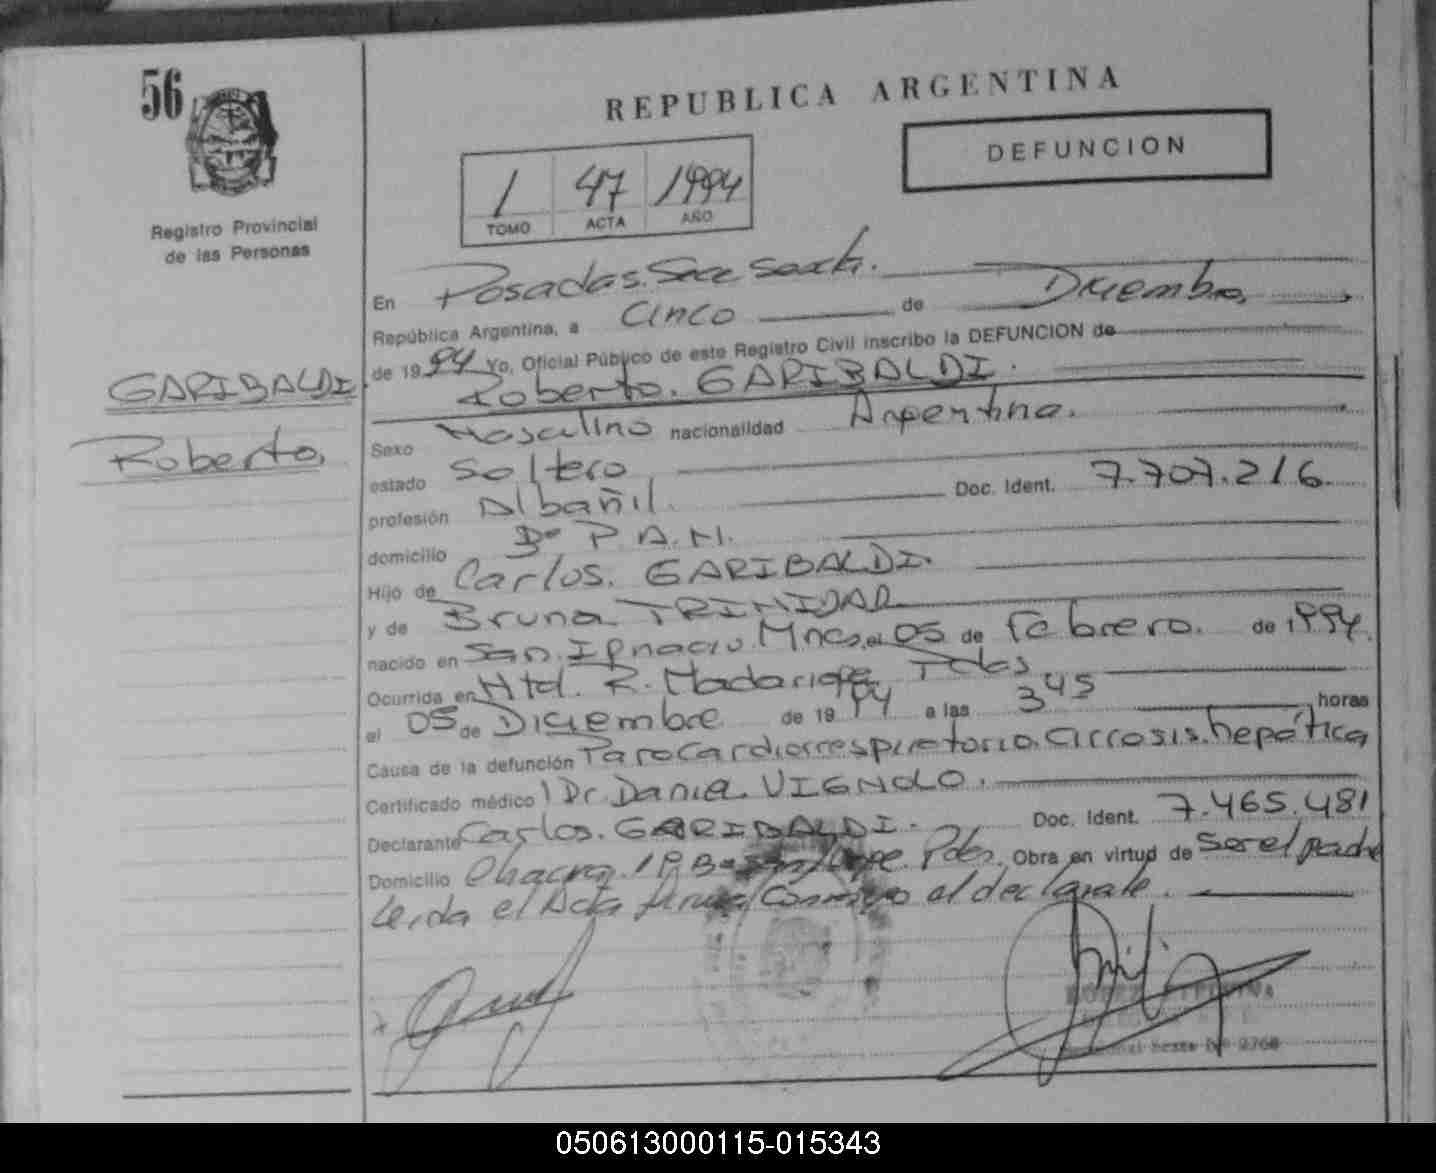 56
REPUBLICA ARGENTINA
DEFUNCION
1 47 1994
TOMO ACTA AÑO
Registro Provincial
de las Personas
En Posadas. Secc Sexta.
República Argentina, a Cinco de Diciembre
de 1994 Yo, Oficial Público de este Registro Civil inscribo la DEFUNCION de
Roberto. GARIBALDI.
GARIBALDI
Roberto,
Sexo Masculino nacionalidad Argentina.
estado Soltero
profesión Albañil. Doc. Ident. 7.707.216.
domicilio Bº P.A.M.
Hijo de Carlos. GARIBALDI.
y de Bruna TRINIDAD
nacido en San. Ignacio. Mnes. el 05 de Febrero. de 1994.
Ocurrida en Htal. R. Madariaga Pdas
el 05 de Diciembre de 1994 a las 3 45 horas
Causa de la defunción Parocardiorrespiratorio. Cirrosis. hepática
Certificado médico Dr. Daniel VIGNOLO.
Declarante Carlos. GARIBALDI. Doc. Ident. 7.465.481
Domicilio Chacra Pdas. Obra en virtud de Ser el padre
Leída el Acta firma Conmigo el declarate.
2768
050613000115-015343